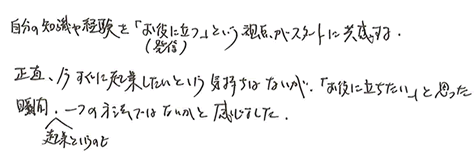 自分の知識や経験を「お役に立つ」という視点がスタートに共感する。
(発信)
正直、今すぐに起業したいという気持ちはないが、「お役に立ちたい」と思った
瞬間、一つの方法ではないかと感じました。
起業というのも